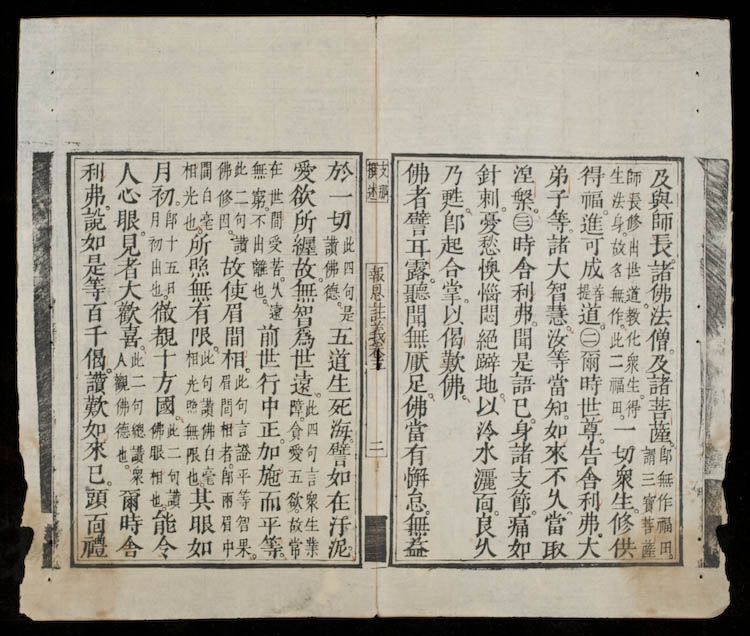 及與師長。諸佛法僧。及諸菩薩。即無作福田。謂三寶菩薩
師長修出世道教化衆生得生法身。故名無作。此二福田。一切衆生修供
得福。進可成菩提道。㊁爾時世尊。告舍利弗。大
弟子等。諸大智慧。汝等當知。如來不久。當取
涅槃。㊂時舍利弗。聞是語已。身諸支節。痛如
針刺。憂愁懊惱。悶絕躃地。以冷水灑面。良久
乃甦。即起合掌。以偈歎佛。
佛者譬甘露。聽聞無厭足。佛當有懈怠。無益
支那撰述
報恩註義卷三
二
於一切。此四句是讚佛德。五道生死海。譬如在汙泥。
愛欲所纏故。無智爲世遠。此四句言衆生業障。貪愛五欲。故常
在世間受苦。久遠無窮。不出離也。前世行中正。加施而平等。
此二句讚佛修因。故使眉間相。此句言證平等智果。眉間相者。即兩眉中
間白毫相光也。所照無有限。此句讚佛白毫相光照無限也。其眼如
月初。即十五日月初出也。徹覩十方國。此二句讚佛眼相也。能令
人心眼。見者大歡喜。此二句總讚衆人觀佛德也。爾時舍
利弗。說如是等百千偈。讚歎如來已。頭面禮